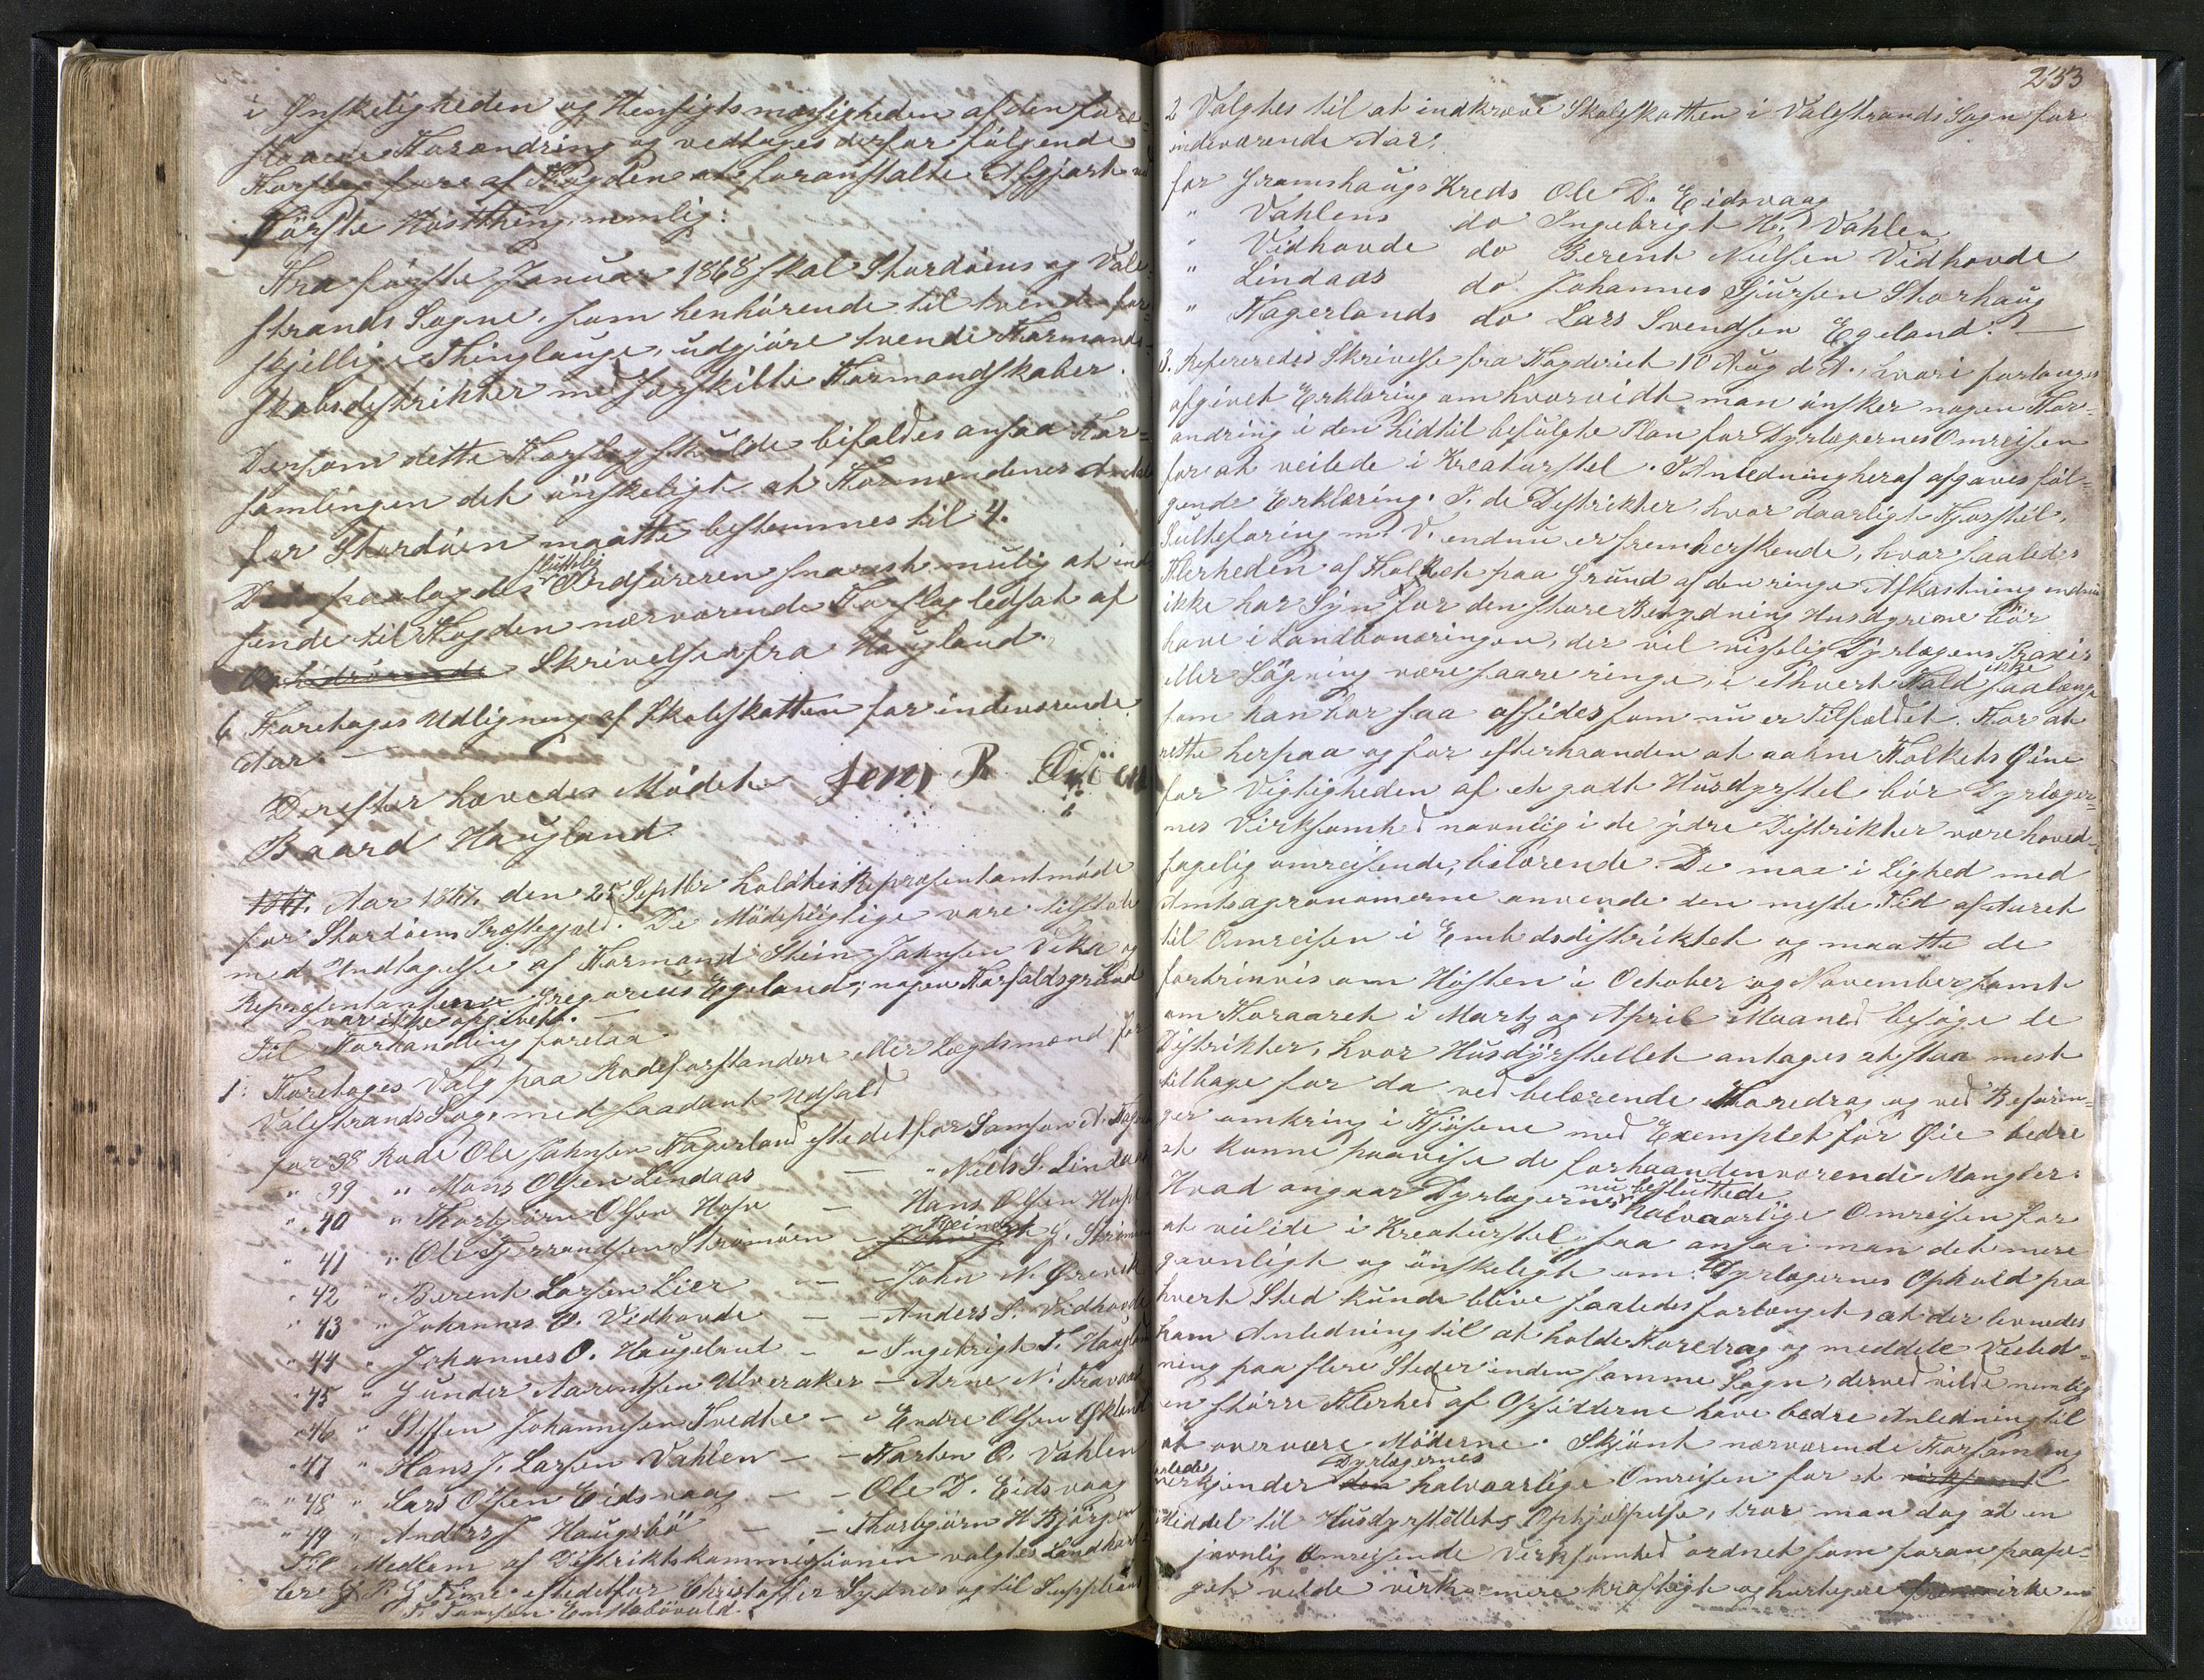 i Ønskeligheden og Hensigtsmæsigheden af den fore-
slaaede Forandring og vedtages derfor følgende
Forslag fore af Fogden at foranstalte Afgjort ved
første Høstthing, nemlig:
Fra første Januar 1868 skal Stordøens og Vale-
strands Sogne, som henhørende til tvende for-
skjellige Thinglauge, udgjøre tvende Formands-
skabsdistrikter med særskilte Formandskaber.
Dersom dette Forslag skulde bifaldes ansaa For-
samlingen det ønskeligt at Formændenes Antal
for Stordøen maatte bestemmes til 4.
Det paalagdes sluttelig Ordføreren snarest mulig at ind-
sende til Fogden nærværende Forslag ledsat af
Skrivelse fra Haugland.
6 Foretages Udligning af Skoleskatten for indeværende
Aar. —
Derefter hævedes Mødet. Jens R
Baard Haugland
1867. Aar 1867. den 25 Septbr holdtes Repræsentantmøde
for Stordøens Præstegjæld. De Mødepligtige vare tilstæde
med Undtagelse af Formand Stein Johnsen Vika og
Repræsentanterne Gregorius Egeland; nogen Forfaldsgrund
var ikke opgivet. —
Til Forhandling forelaa
1: Foretages Valg paa Rodeforstandere eller Lægdsmænd for
Valestrands Sogn med saadant Udfald
for 38 Rode Ole Johnsen Fagerland istedetfor Samson A.
" 39 " Mons Olsen Lindaas — " Niels S. Lindaas
" 40 " Thorbjørn Olsen Hope — Hans Olsen Hope
" 41 " Ole Tjerrandsen Strømøen — G.
" 42 " Berent Larsen Lier — — John N. Ørevik
" 43 " Johannes E. Vidhovde — — Anders S. Vidhovde
" 44 " Johannes O. Haugeland — — Ingebrigt T. Haugland
" 45 " Gunder Aarentsen Ulveraker — Arne N. Travaas
" 46 " Steffen Johannesen Tvedte — " Endre Olsen Økland
" 47 " Hans J. Larsen Vahlen — — Torsten O. Vahlen
" 48 " Lars Olsen Eidsvaag — — Ole D. Eidsvaag
" 49 " Anders J Haugsbø — — Thorbjørn H Bjørgen
Til Medlem af Distriktskommissionen valgtes Landhand-
ler P G istedetfor Christoffer Sydnes og til Suppleant
T. Tomsen
233
2 Valgtes til at indkræve Skoleskatten i Valestrands Sogn for
indeværende Aar:
for Framshaugs Kreds Ole D. Eidsvaag
" Vahlens do Ingebrigt H. Vahlen
" Vidhovde do Berent Nielsen Vidhovde
" Lindaas do Johannes Sjursen Storhaug
" Fagerlands do Lars Svendsen Egeland. —
3. Refereredes Skrivelse fra Fogderiet 10 Aug d. A., hvori forlanges
afgivet Erklæring om hvorvidt man ønsker nogen For-
andring i den hidtil befulgte Plan for Dyrlægernes Omreisen
for at veilede i Kreaturstel. I Anledning heraf afgaves føl-
gende Erklæring. I de Distrikter hvor daarligt Fjøsstel,
Sultefôring m. V. endnu er fremherskende, hvor saaledes
Flerheden af Folket paa Grund af den ringe Afkastning endnu
ikke har Syn for den store Betydning Husdyrene bør
have i Landbonæringen, der vil visselig Dyrlægens Praxis
eller Søgning være saare ringe, i ethvert Fald ikke saalænge
som han bor saa afsides som nu er Tilfældet. For at
rette herpaa og for efterhaanden at aabne Folkets Øine
for Vigtigheden af et godt Husdyrstel bør Dyrlæger-
nes Virksomhed navnlig i de ydre Distrikter være hoved-
sagelig omreisende, belærende. De maa i Lighed med
Amtsagronomerne anvende den meste Tid af Aaret
til Omreisen i Embedsdistriktet og maatte de
fortrinvis om Høsten i October og November samt
om Foraaret i Marts og April Maaned besøge de
Distrikter, hvor Husdyrstellet antages at staa mest
tilbage for da ved belærende Foredrag og ved Besøgin-
ger omkring i Fjøsene med Exemplet for Øie bedre
at kunne paavise de forhaandenværende Mangler.
Hvad angaar Dyrlægernes nu besluttede halvaarlige Omreisen for
at veilede i Kreaturstel saa ansaa man det mere
gavnligt og ønskeligt om Dyrlægernes Ophold paa
hvert Sted kunde blive saaledes forlænget, at der levnedes
ham Anledning til at holde Foredrag og meddele Veiled-
ning paa flere Steder inden samme Sogn, derved vilde nemlig
en større Flerhed af Opsidderne have bedre Anledning til
at overvære Møderne. Skjønt nærværende Forsamling
saaledes erkjender Dyrlægernes halvaarlige Omreisen for et virksomt
Middel til Husdyrstellets Ophjælpelse, tror man dog at en
jævnlig omreisende Virksomhed ordnet som foran paape-
get vilde virke mere kraftigt og hurtigere